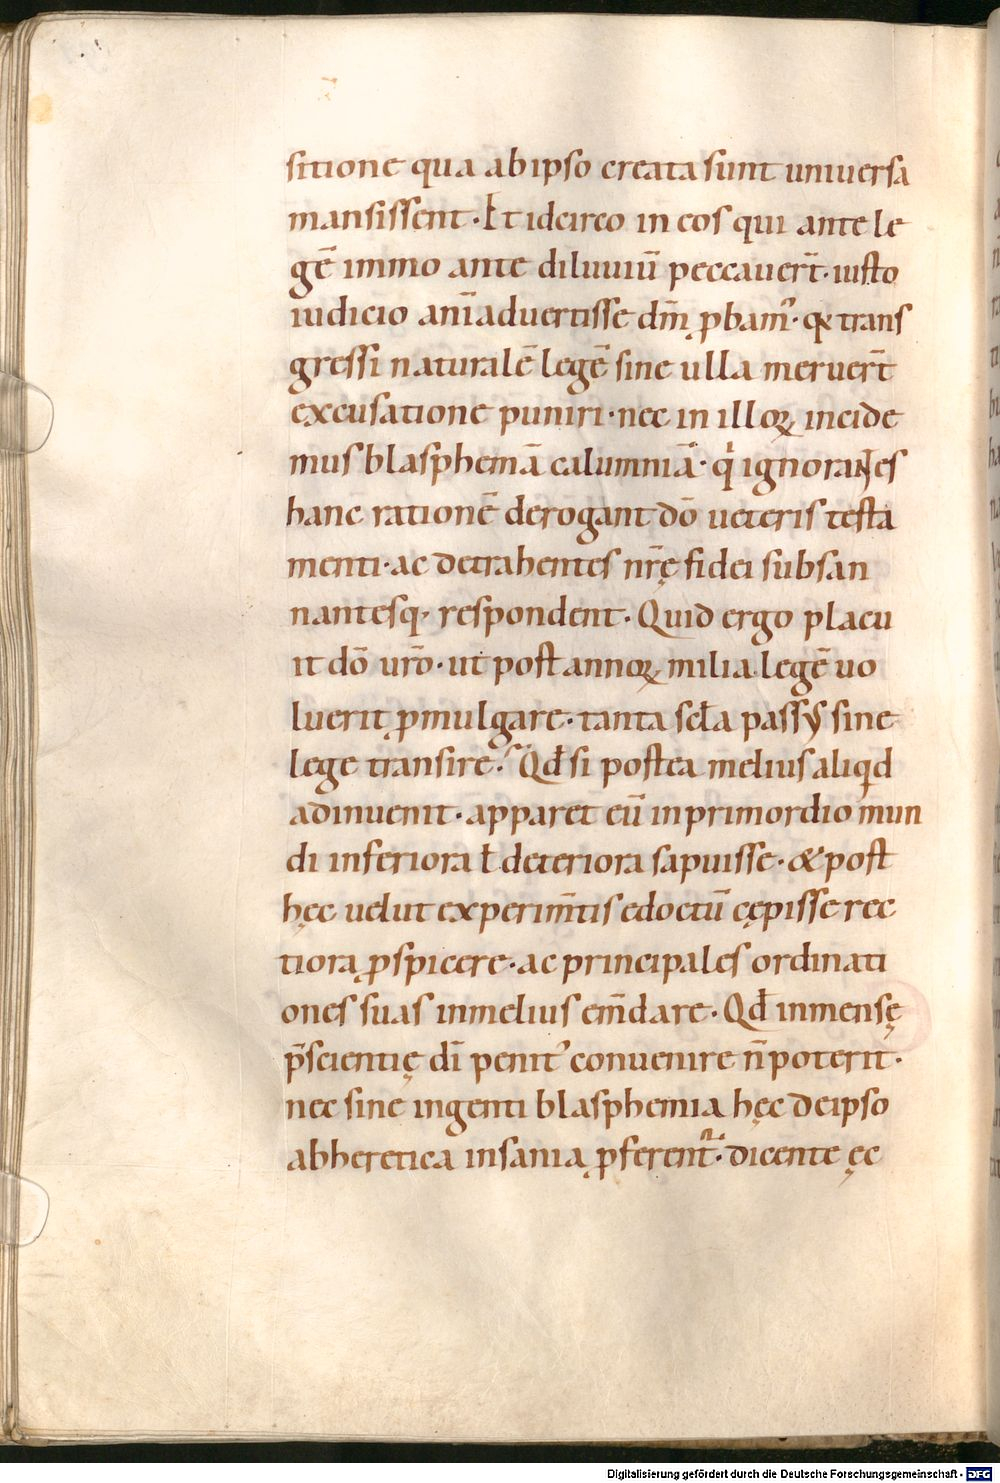 sitione qua ab ipso creata sunt uniuersa
mansissent. Et idcirco in eos qui ante le
gē immo ante diluuiū peccauer̄t. iusto
iudicio anīaduertisse dm̄ ꝓbam᷒. qa trans
gressi naturalē legē sine ulla meruer̄t
excusatione puniri. nec in illoꝝ incide
mus blasphemā calumniā. qͥ ignorantes
hanc rationē derogant dō ueteris testa
menti. ac detrahentes nr̄ę fidei subsan
nantesq; respondent. Quid ergo placu
it dō ur̄o. ut post annoꝝ milia legē uo
luerit ꝓmulgare. tanta scl̄a passus sine
lege transire. Qd̄ si postea melius aliqd
adinuenit. apparet eū in primordio mun
di inferiora ł deteriora sapuisse. & post
hęc uelut experim̄tis edoctū cępisse rec
tiora ꝓspicere. ac principales ordinati
ones suas in melius em̄dare. Qd̄ inmensę
p̄scientię dī penit᷒ conuenire n̄ poterit.
nec sine ingenti blasphemia hęc de ipso
ab heretica insania ꝓferent᷑. dicente ęc
Digitalisierung gefördert durch die Deutsche Forschungsgemeinschaft - DFG